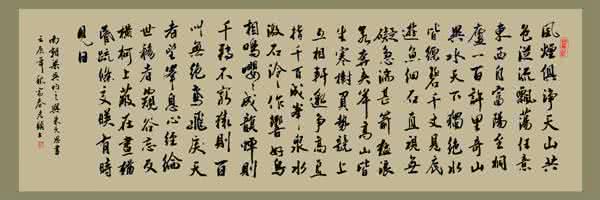 風煙俱淨天山共
色從流飄蕩任意
東西自富陽至桐
廬一百許里奇山
異水天下獨絕水
皆縹碧千丈見底
遊魚細石直視無
礙急湍甚箭猛浪
若奔夾岸高山皆
生寒樹負勢競上
互相軒邈爭高直
指千百成峰泉水
激石泠々作響好鳥
相鳴嚶々成韻蟬則
千轉不窮猿則百
叫無絕鳶飛戾天
者望峰息心經綸
世務者窺谷忘反
橫柯上蔽在晝猶
昏疏條交映有時
見日
南朝梁吳均之與朱元思書
壬辰年秋